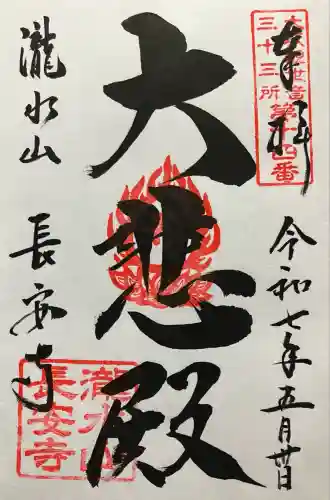 奉拝
世音第十四番
三十三所
令和七年五月廿日
大悲殿
瀧水山
長安寺
瀧水山
長安寺